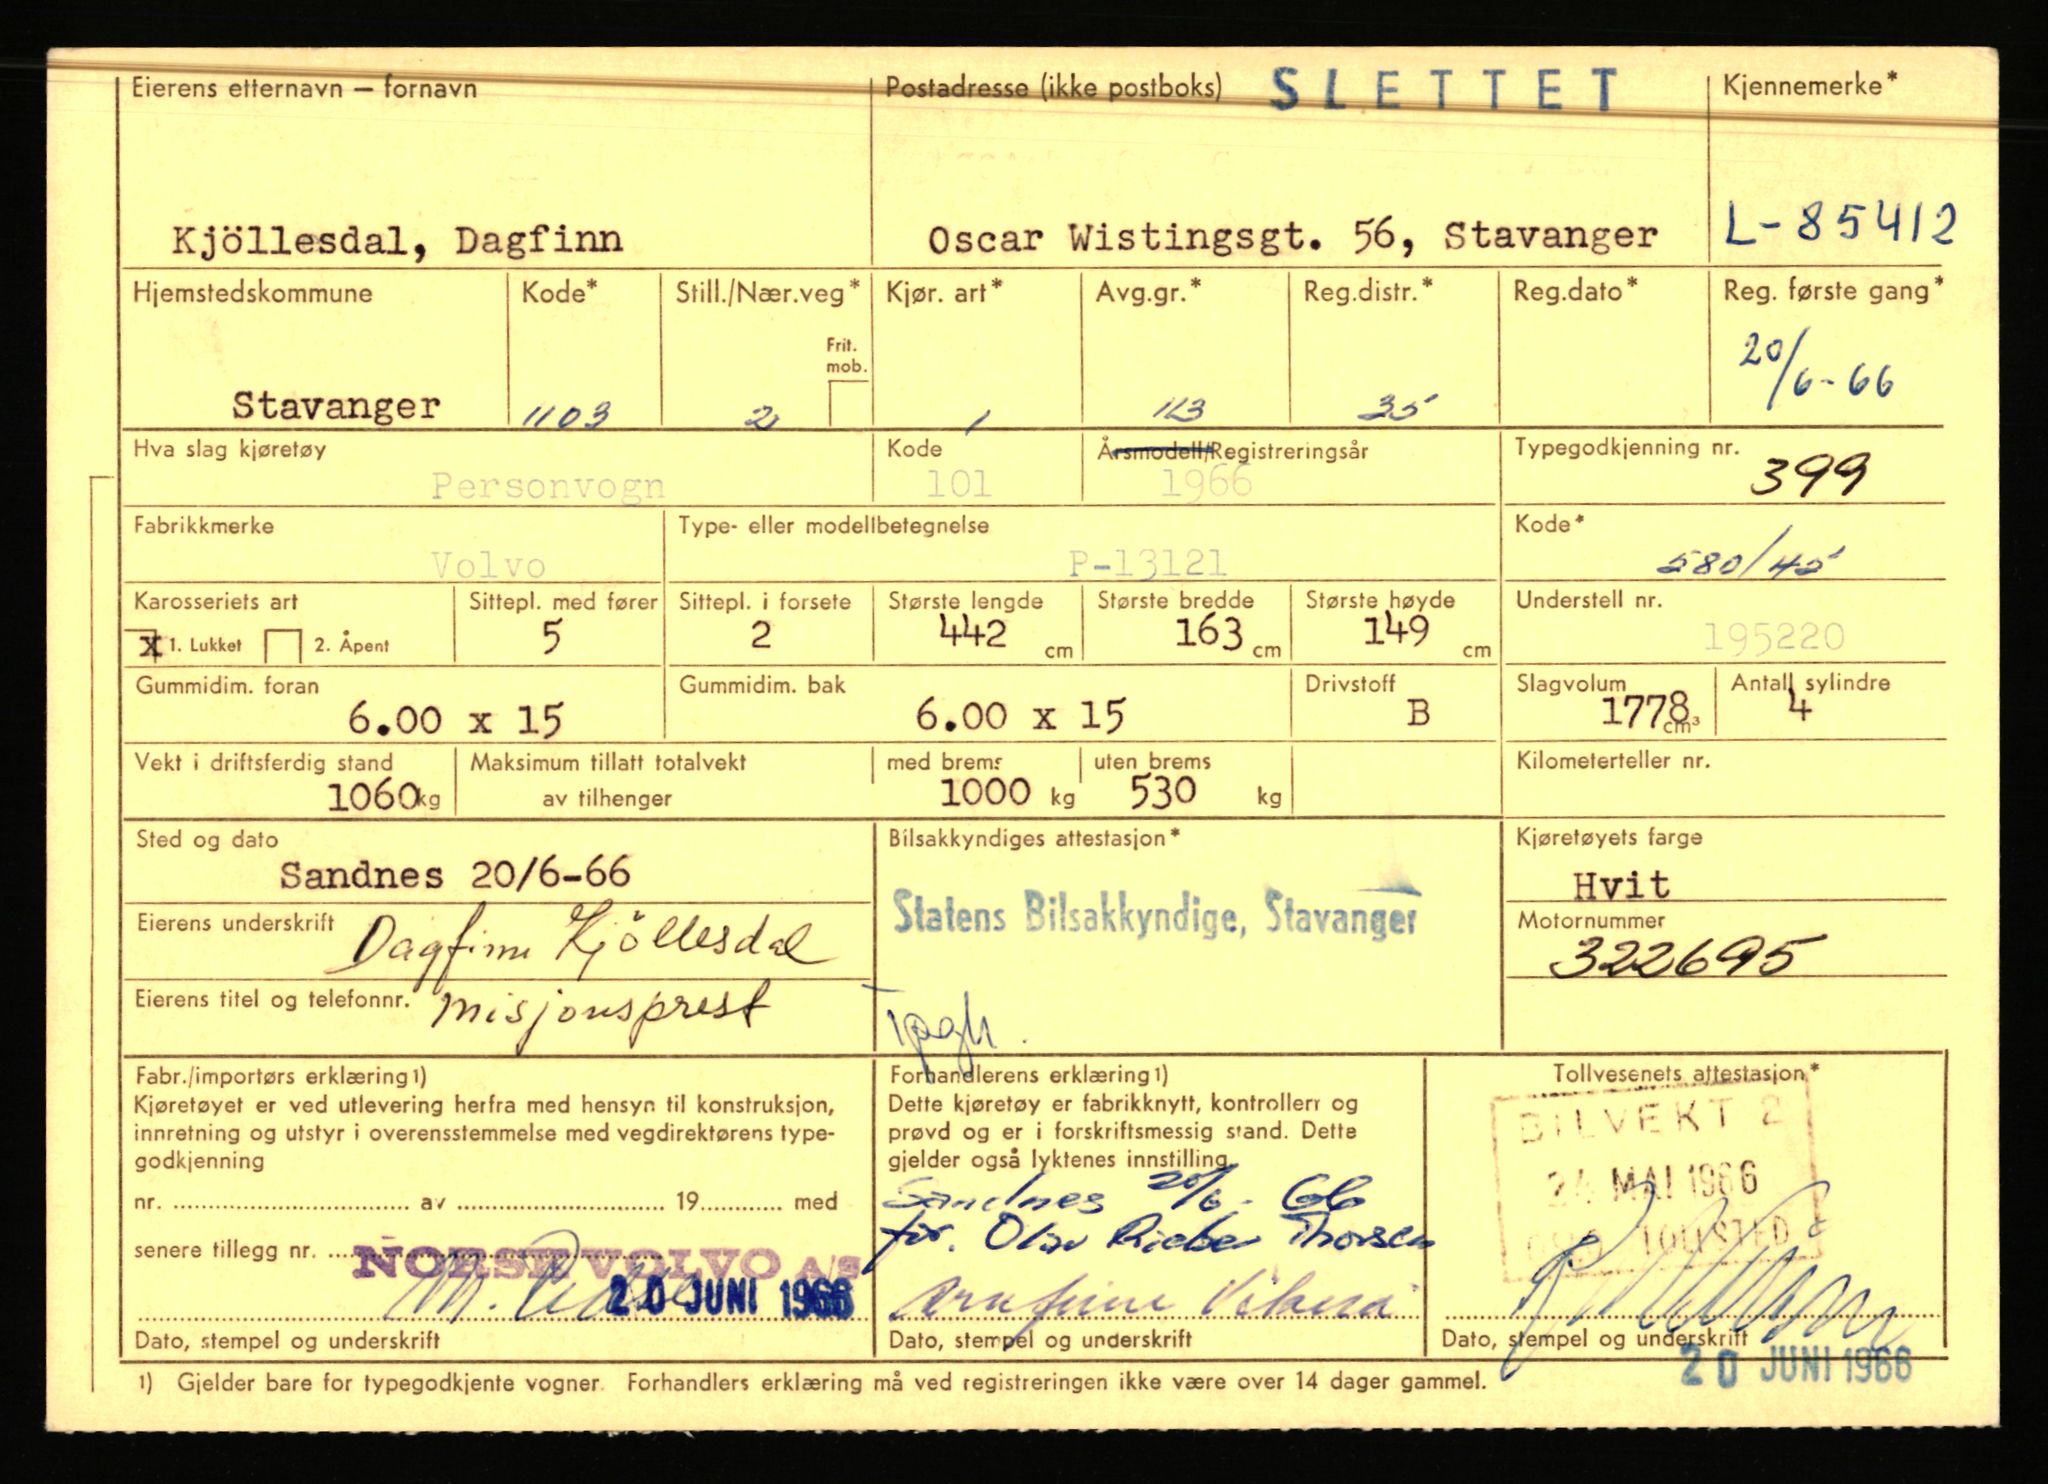 Eierens etternavn – fornavn Postadresse (ikke postboks) SLETTET Kjennemerke*
Kjöllesdal, Dagfinn Oscar Wistingsgt. 56, Stavanger L-85412
Hjemstedskommune Kode* Still./Nær.veg* Kjør. art* Avg.gr.* Reg.distr.* Reg.dato* Reg. første gang*
Frit. mob.
Stavanger 1103 2 1 113 35 20/6-66
Hva slag kjøretøy Kode Årsmodell/Registreringsår Typegodkjenning nr.
Personvogn 101 1966 399
Fabrikkmerke Type- eller modellbetegnelse Kode*
Volvo P-13121 580/45
Karosseriets art Sittepl. med fører Sittepl. i forsete Største lengde Største bredde Største høyde Understell nr.
x 1. Lukket 2. Åpent 5 2 442 cm 163 cm 149 cm 195220
Gummidim. foran Gummidim. bak Drivstoff Slagvolum Antall sylindre
6.00 x 15 6.00 x 15 B 1778 cm³ 4
Vekt i driftsferdig stand Maksimum tillatt totalvekt med brems uten brems Kilometerteller nr.
1060 kg av tilhenger 1000 kg 530 kg
Sted og dato Bilsakkyndiges attestasjon* Kjøretøyets farge
Sandnes 20/6-66 Hvit
Eierens underskrift Dagfinn Kjöllesdal Statens Bilsakkyndige, Stavanger Motornummer
322695
Eierens titel og telefonnr. misjonsprest
Fabr./importørs erklæring1) Forhandlerens erklæring1) Tollvesenets attestasjon*
Kjøretøyet er ved utlevering herfra med hensyn til konstruksjon, Dette kjøretøy er fabrikknytt, kontrollert og BILVEKT 2
innretning og utstyr i overensstemmelse med vegdirektørens type- prøvd og er i forskriftsmessig stand. Dette
godkjenning gjelder også lyktenes innstilling. 24 MAI 1966
nr. av 19 med Sandnes 20/6-66
senere tillegg nr. NORSK VOLVO A/S for. Olav Rieber Thorsen
20 JUNI 1966
Dato, stempel og underskrift Dato, stempel og underskrift Dato, stempel og underskrift
20 JUNI 1966
1) Gjelder bare for typegodkjente vogner. Forhandlers erklæring må ved registreringen ikke være over 14 dager gammel.